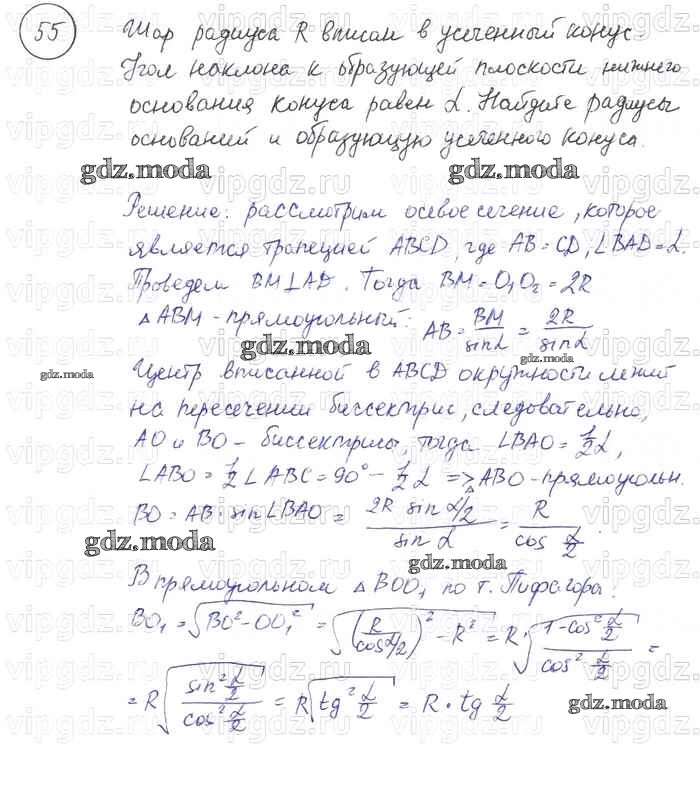 55
Шар радиуса R вписан в усеченный конус.
Угол наклона к образующей плоскости нижнего
основания конуса равен α. Найдите радиусы
оснований и образующую усеченного конуса.
gdz.moda gdz.moda
Решение: рассмотрим осевое сечение, которое
является трапецией ABCD, где AB = CD, ∠BAD = α.
Проведем BM⊥AD. Тогда BM = O₁O₂ = 2R
△ABM - прямоугольный: AB = BM/sinα = 2R/sinα
gdz.moda gdz.moda
gdz.moda
Центр вписанной в ABCD окружности лежит
на пересечении биссектрис, следовательно,
AO и BO - биссектрисы, тогда ∠BAO = 1/2 α,
∠ABO = 1/2 ∠ABC = 90° - 1/2 α => △ABO - прямоугольн.
BO = AB · sin∠BAO = 2R sin α/2 / sin α = R / cos α/2.
gdz.moda gdz.moda
В прямоугольном △BOO₁ по т. Пифагора:
BO₁ = √(BO² - OO₁²) = √((R/cos α/2)² - R²) = R · √((1 - cos² α/2)/(cos² α/2)) =
= R √(sin² α/2 / cos² α/2) = R √(tg² α/2) = R · tg α/2
gdz.moda